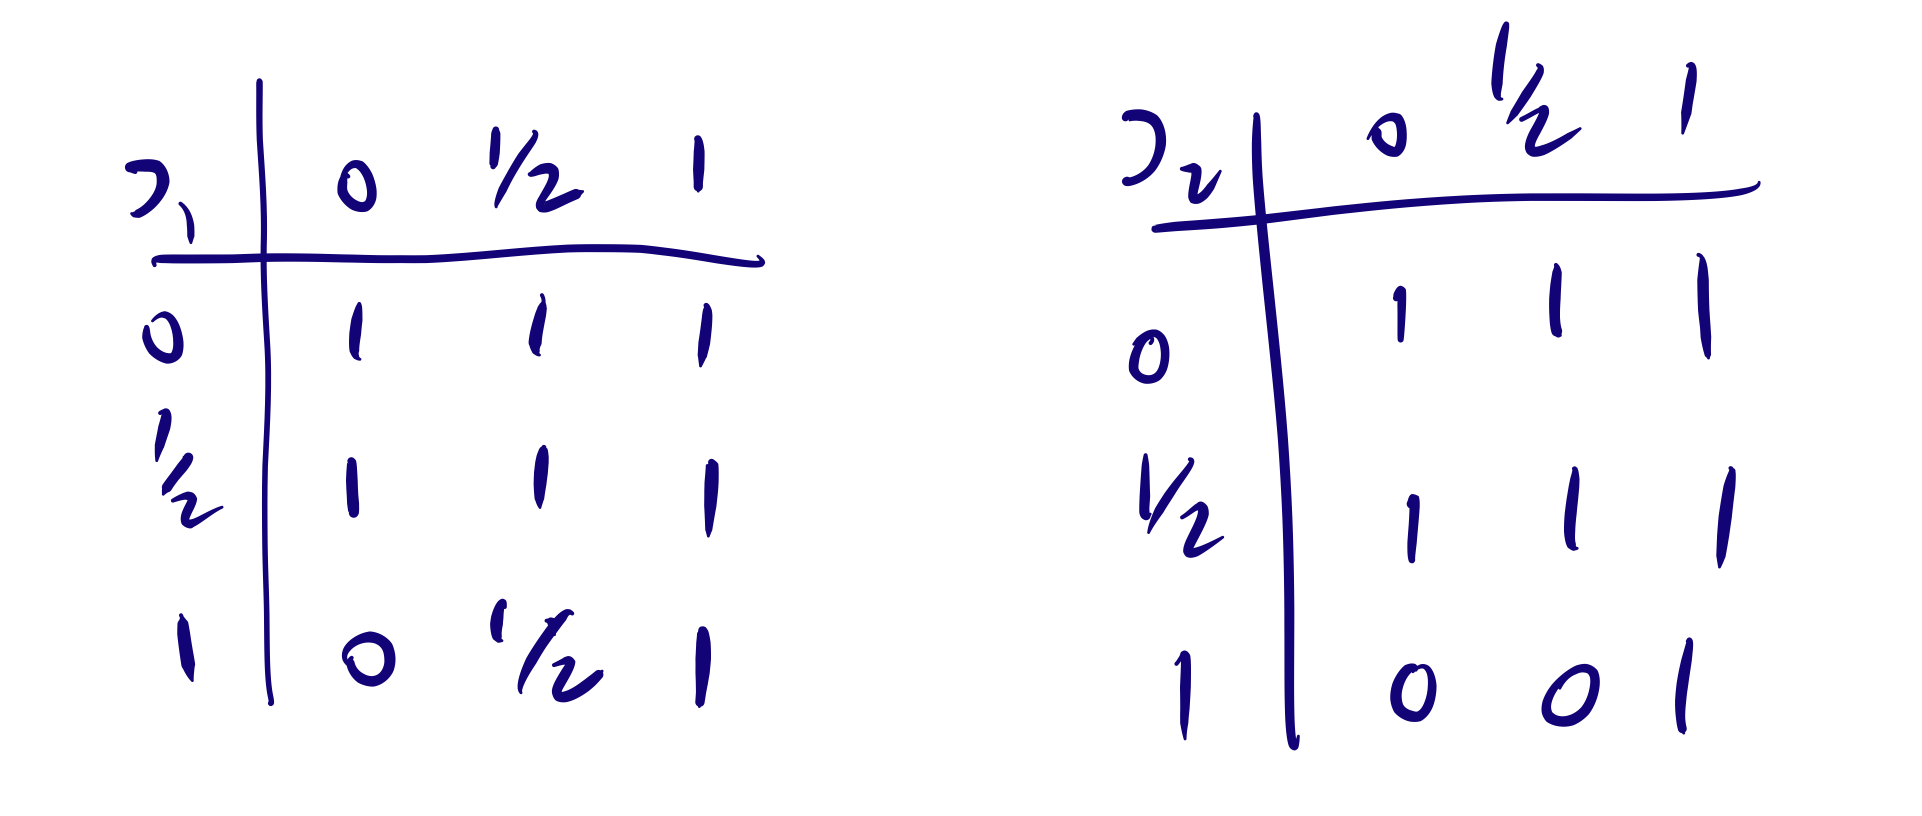 ⊃₁ 0 1/2 1
0 1 1 1
1/2 1 1 1
1 0 1/2 1
⊃₂ 0 1/2 1
0 1 1 1
1/2 1 1 1
1 0 0 1